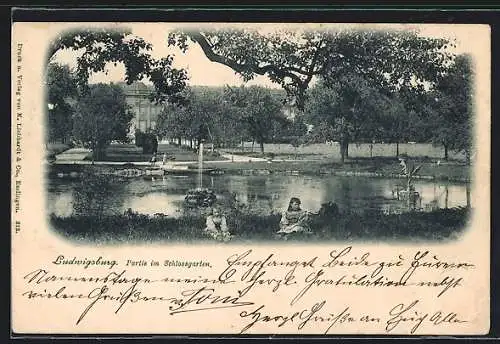 Druck u. Verlag von R. Linthardt & Co., Esslingen.
213.
Ludwigsburg. Partie im Schlossgarten.
Empfanget Beide zu Eurem
Namenstage meine herzl. Gratulation nebst
vielen Grüssen
Herzl. Gruss an Euch Alle